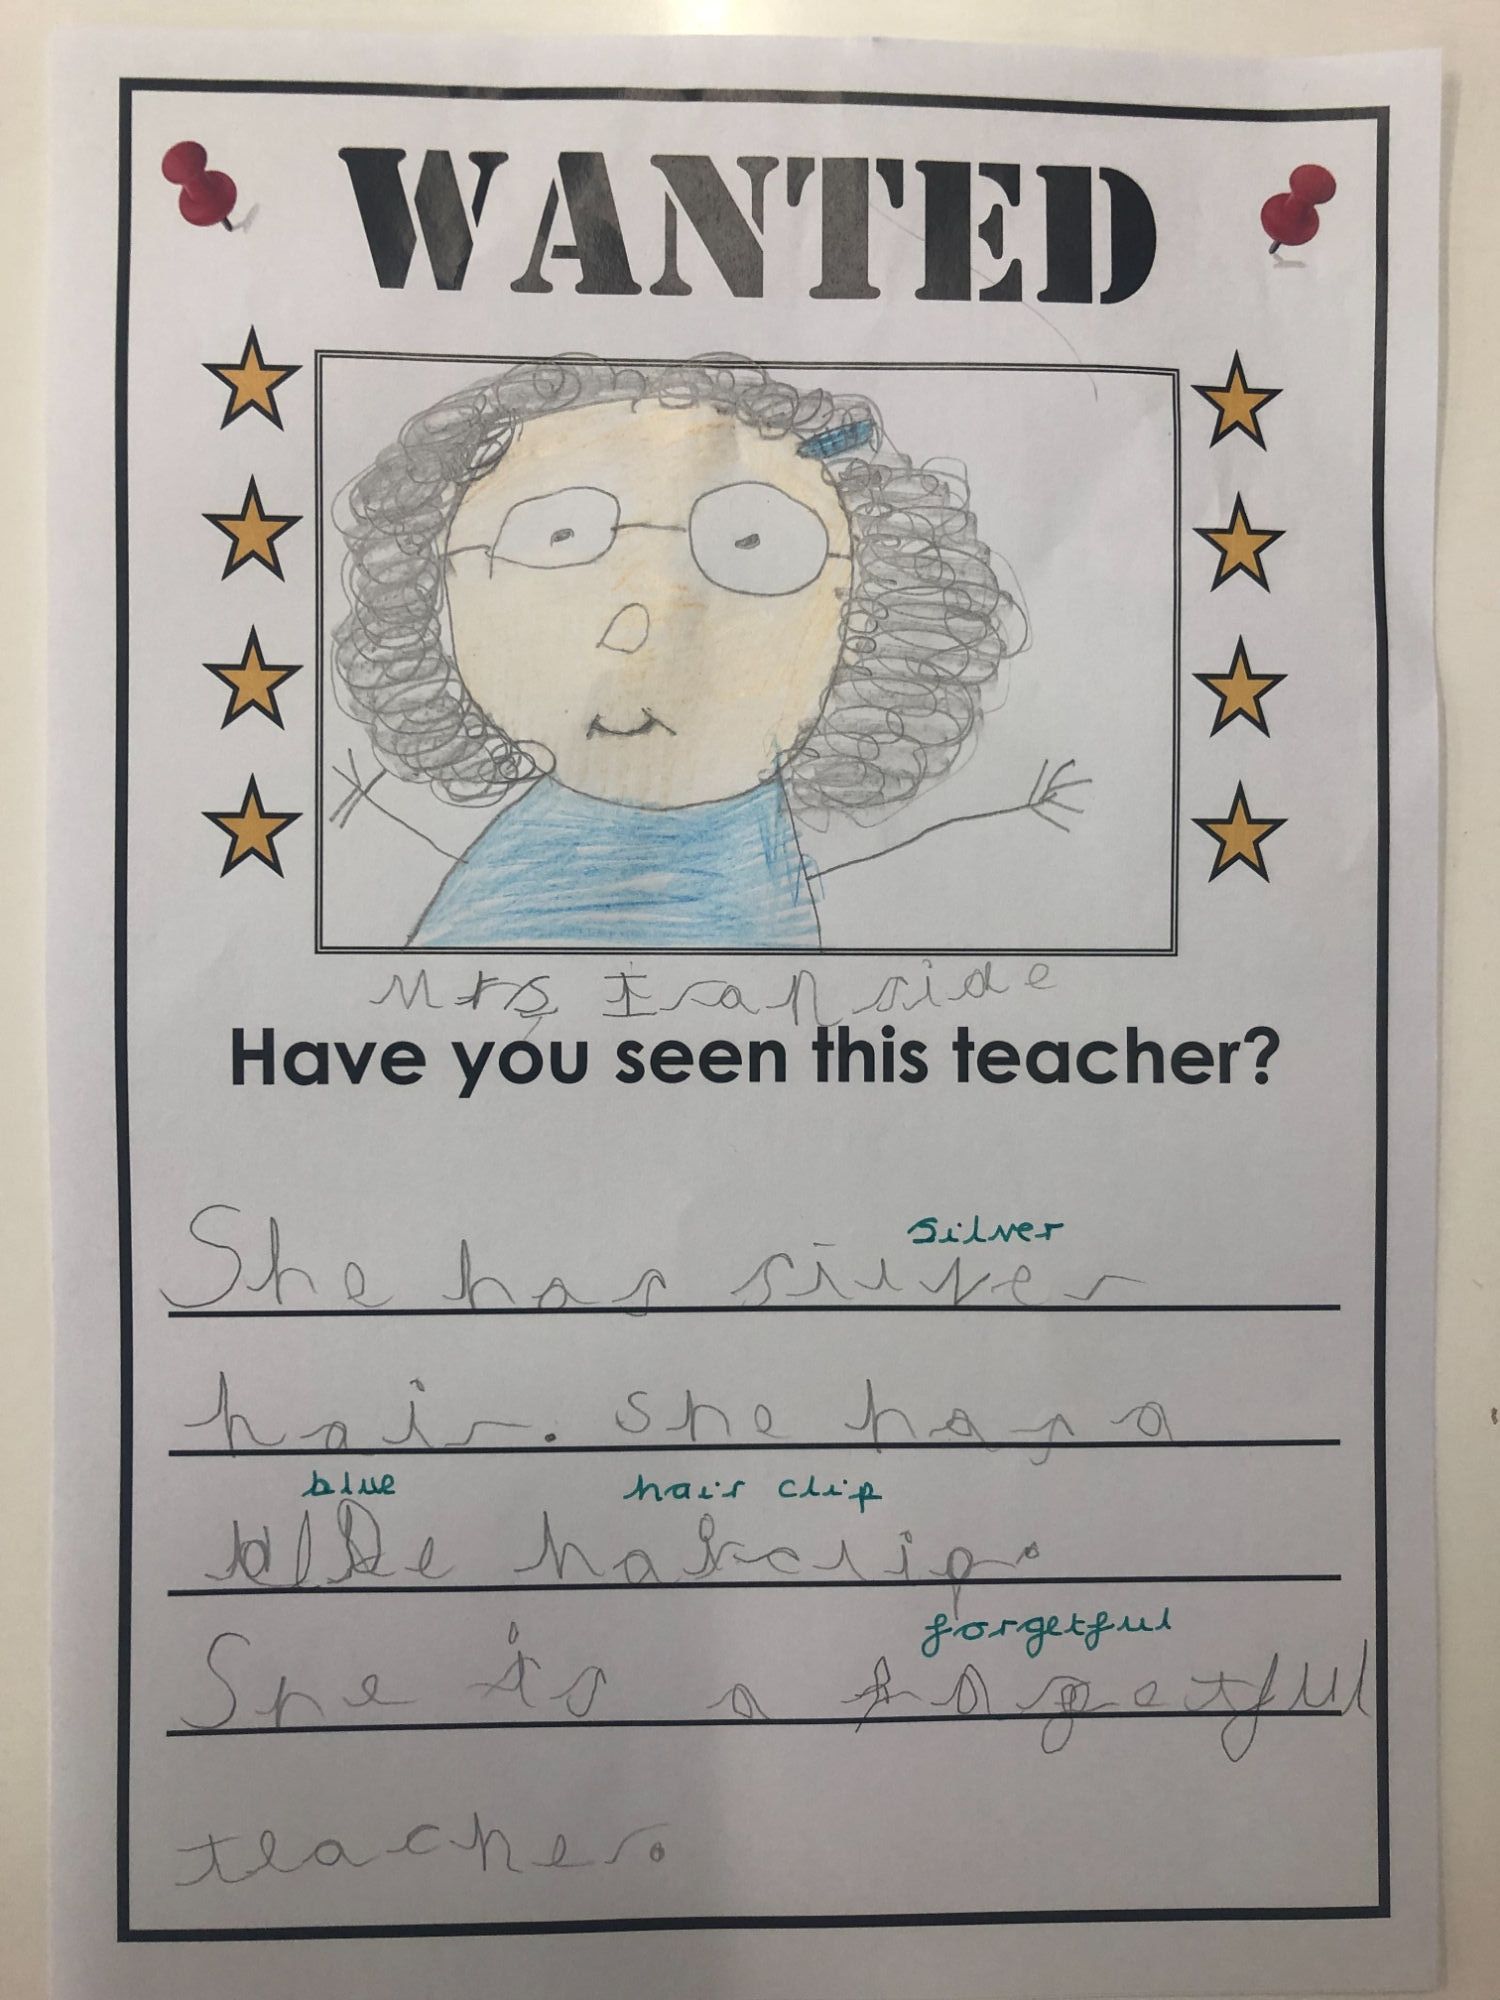 WANTED
Mrs Iranside
Have you seen this teacher?
silver
She has siluver
hair. she has a
blue hair clip
blue hairclip.
forgetful
She is a fargetful
teacher.